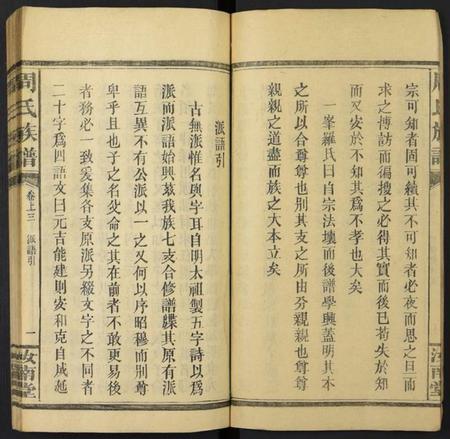 周氏族譜
汝南堂
宗可知者固可續其不可知者必夜而思之旦而
求之博訪而徧搜之必得其實而後已苟失於知
而又安於不知其爲不孝也大矣
一峯羅氏曰自宗法壞而後譜學興蓋明其本
之所以合尊尊也別其支之所由分親親也尊尊
親親之道盡而族之大本立矣
派語引
古無派惟名與字耳自明太祖製五字詩以爲
派而派語始興茲我族七支合修譜牒其原有派
語互異不有公派以一之又何以序昭穆而別尊
卑乎且也子之名父命之其在前者不敢更易後
者務必一致爰集各支原派另綴文字之不同者
二十字爲四語文曰元吉能建則安和克自成延
周氏族譜
卷上三
派語引
一
汝南堂